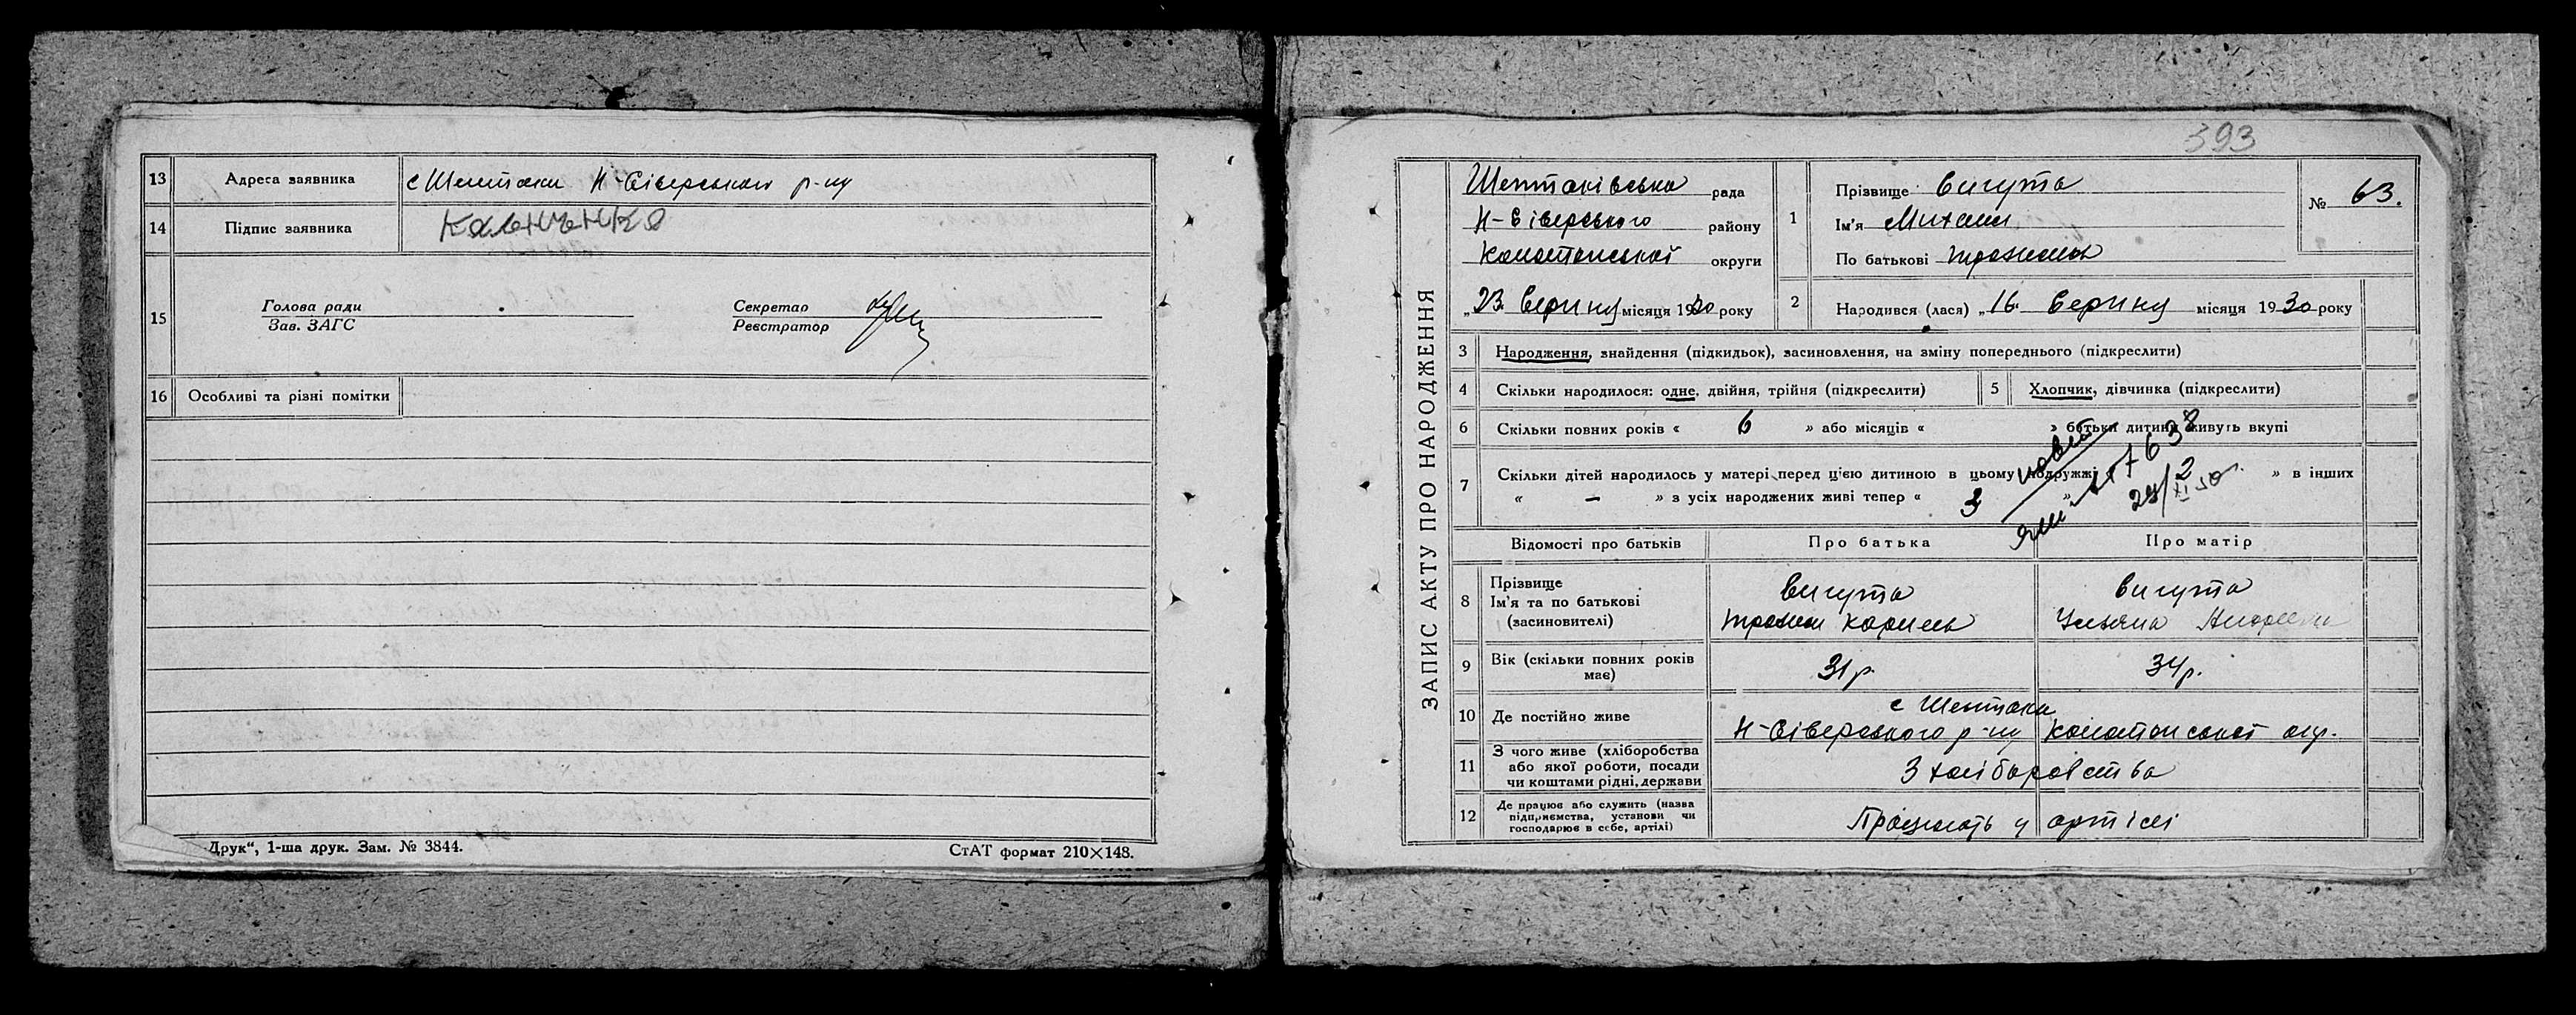 13 Адреса заявника с Шептаки Н-Сіверського р-ну
14 Підпис заявника Каленченко
15 Голова ради Секретар
Зав. ЗАГС Реєстратор
16 Особливі та різні помітки
Друк“, 1-ша друк. Зам. № 3844. СтАТ формат 210×148.
393
ЗАПИС АКТУ ПРО НАРОДЖЕННЯ
Шептаківська рада
Н-Сіверського району
Конотопської округи
„23 Серпня місяця 1930 року
1 Прізвище Вигута
Ім'я Михаил
По батькові
№ 63.
2 Народився (лася) „16 Серпня місяця 1930 року
3 Народження, знайдення (підкидьок), засиновлення, на зміну попереднього (підкреслити)
4 Скільки народилося: одне, двійня, трійня (підкреслити) 5 Хлопчик, дівчинка (підкреслити)
6 Скільки повних років « 6 » або місяців « » батьки дитини живуть вкупі
7 Скільки дітей народилось у матері перед цією дитиною в цьому подружжі » в інших
« – » з усіх народжених живі тепер « 3 »
Відомості про батьків Про батька Про матір
8 Прізвище Вигута Вигута
Ім'я та по батькові
(засиновителі)
9 Вік (скільки повних років має) 31р. 34р.
10 Де постійно живе с Шептаки
Н-Сіверського р-ну Конотопської окр.
11 З чого живе (хліборобства
або якої роботи, посади З хліборобства
чи коштами рідні, держави
12 Де працює або служить (назва
підприємства, установи чи Працюють у артілі
господарює в себе, артілі)